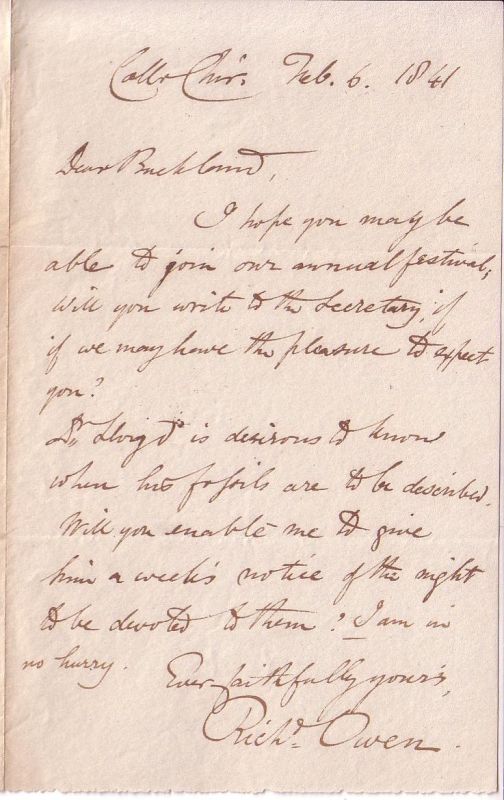 Coll. Chir. Feb. 6. 1841
Dear Buckland,
I hope you may be
able to join our annual festival;
Will you write to the Secretary, if
if we may have the pleasure to expect
you?
Dr. Lloyd is desirous to know
when his fossils are to be described.
Will you enable me to give
him a week's notice of the night
to be devoted to them? I am in
no hurry.
Ever faithfully yours,
Richd. Owen.